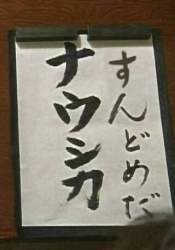 すんどめだ
ナウシカ